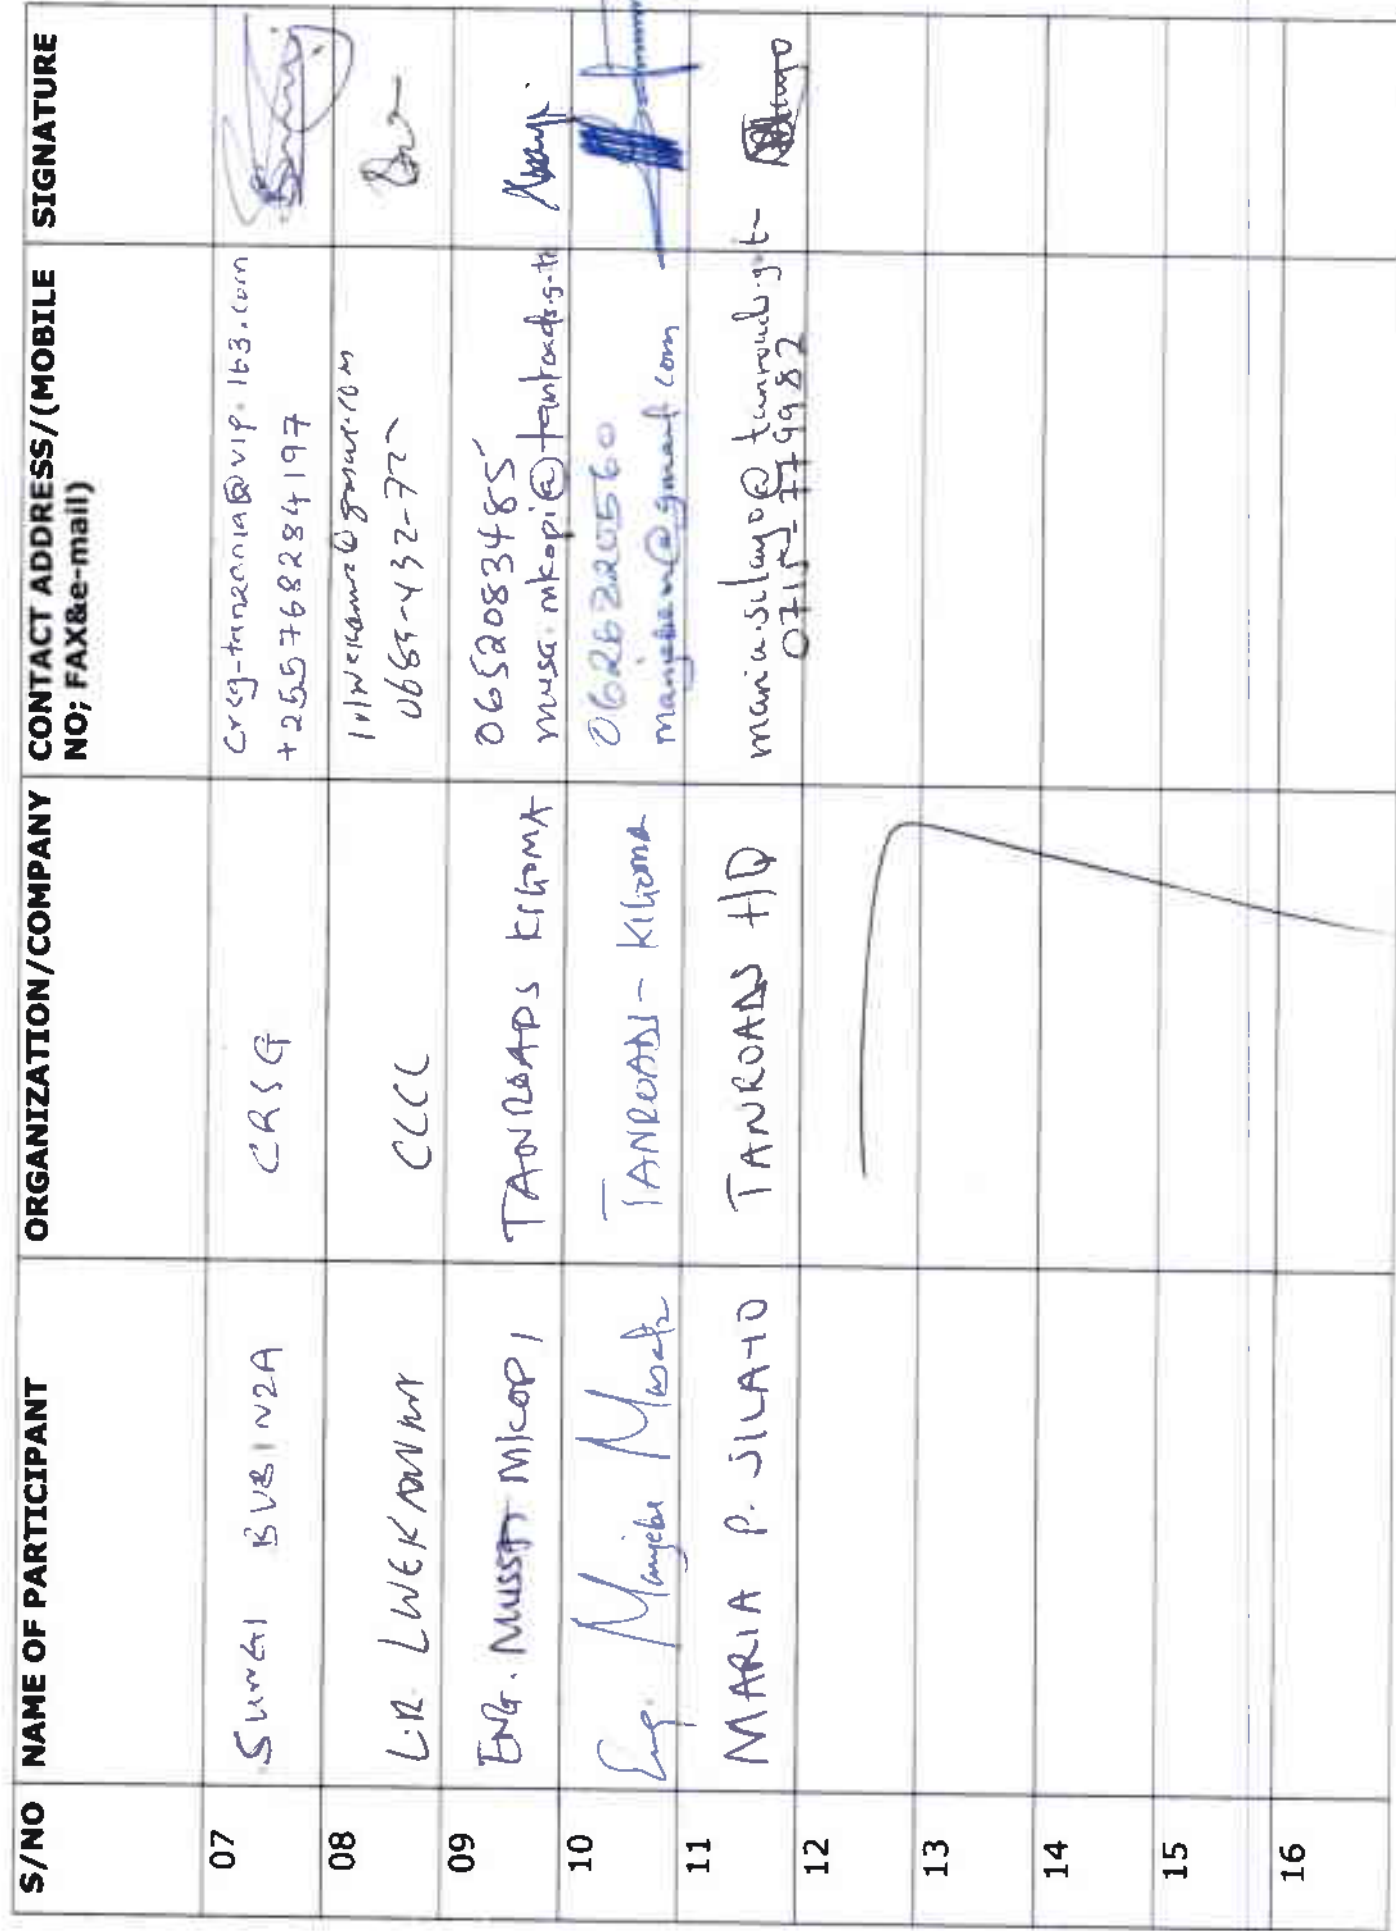 S/NO NAME OF PARTICIPANT ORGANIZATION/COMPANY CONTACT ADDRESS/(MOBILE SIGNATURE
NO; FAX&e-mail)
07 SUNGI BUBINZA CRSG crsg-tanzania@vip.163.com
+255768284197
08 L.R. LWEKAMWA CCCL
0655-432-72
09 ENG. MUSSA MKOPI TANROADS KIGOMA 0652083485
musa.mkopi@tanroads.g.tz
10 Eng. Manjebu TANROADS - KIGOMA 0626220560
11 MARIA P. SILAYO TANROADS H/Q maria.silayo@tanroads.g.t
0715-779982
12
13
14
15
16